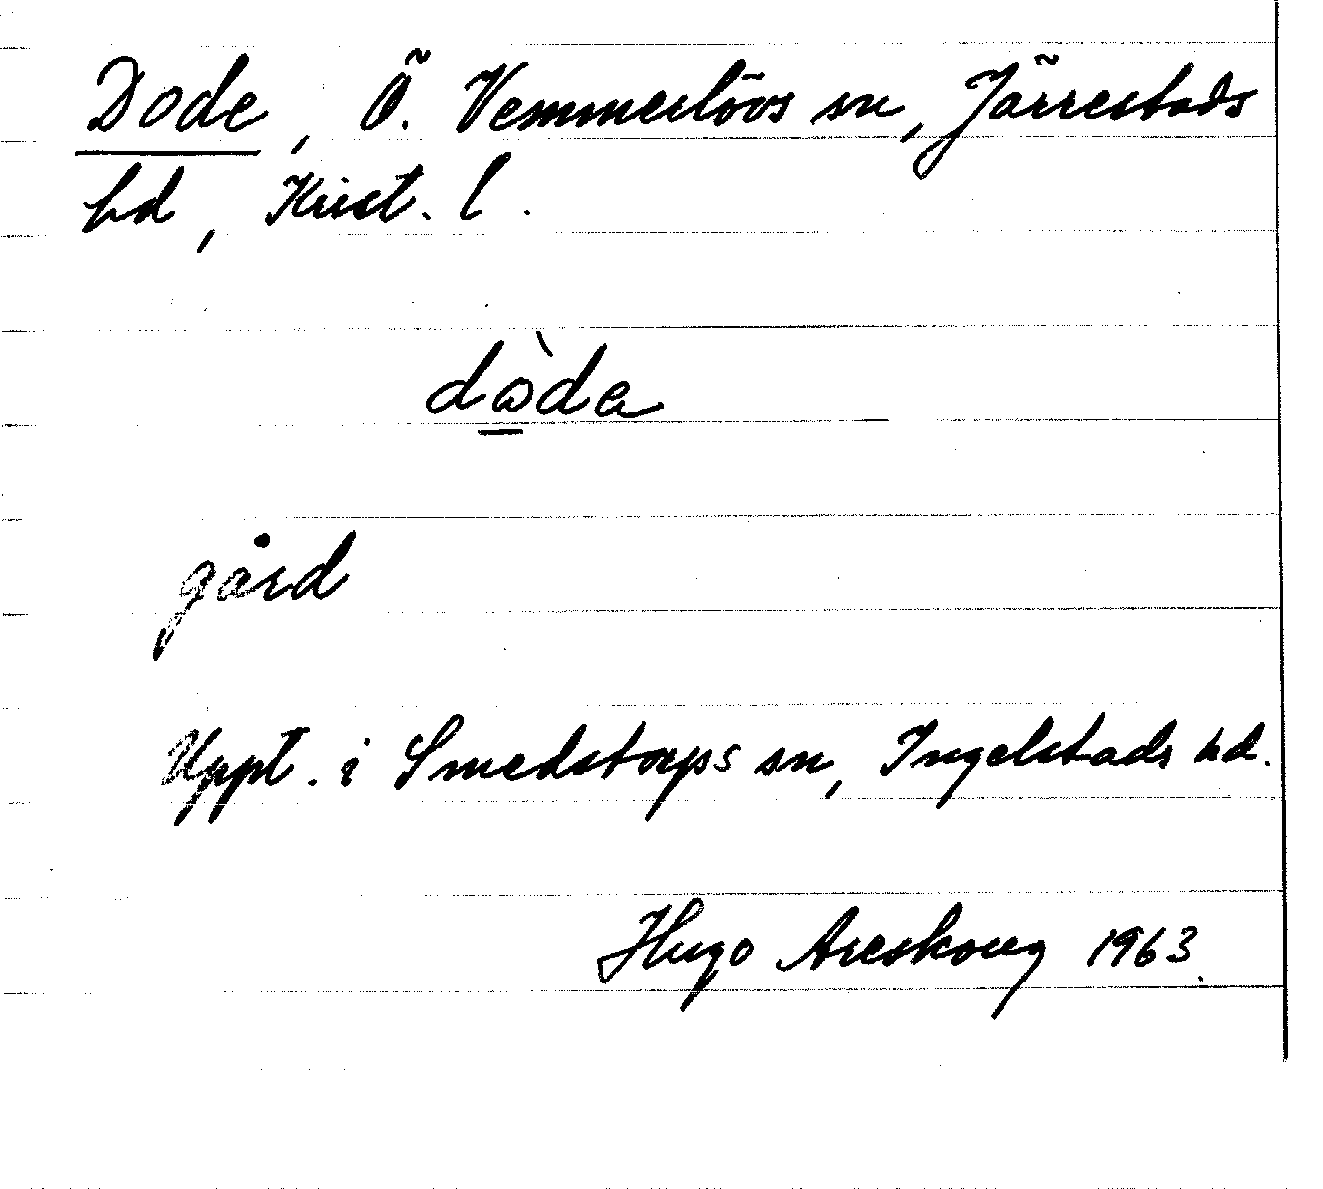 Dode, Ö. Vemmerlövs sn, Järrestads
hd, Krist. l.
dὼda
gård
Uppt. i Smedstorps sn, Ingelstads hd.
Hugo Areskoug 1963.